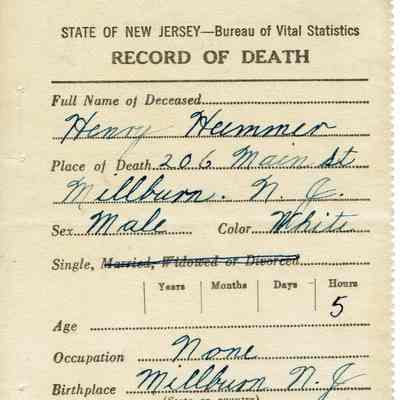 STATE OF NEW JERSEY—Bureau of Vital Statistics
RECORD OF DEATH
Full Name of Deceased
Henry Hummer
Place of Death 206 Main St
Millburn. N. J.
Sex Male Color White
Single, Married, Widowed or Divorced
Years Months Days Hours
5
Age
Occupation None
Birthplace Millburn N. J